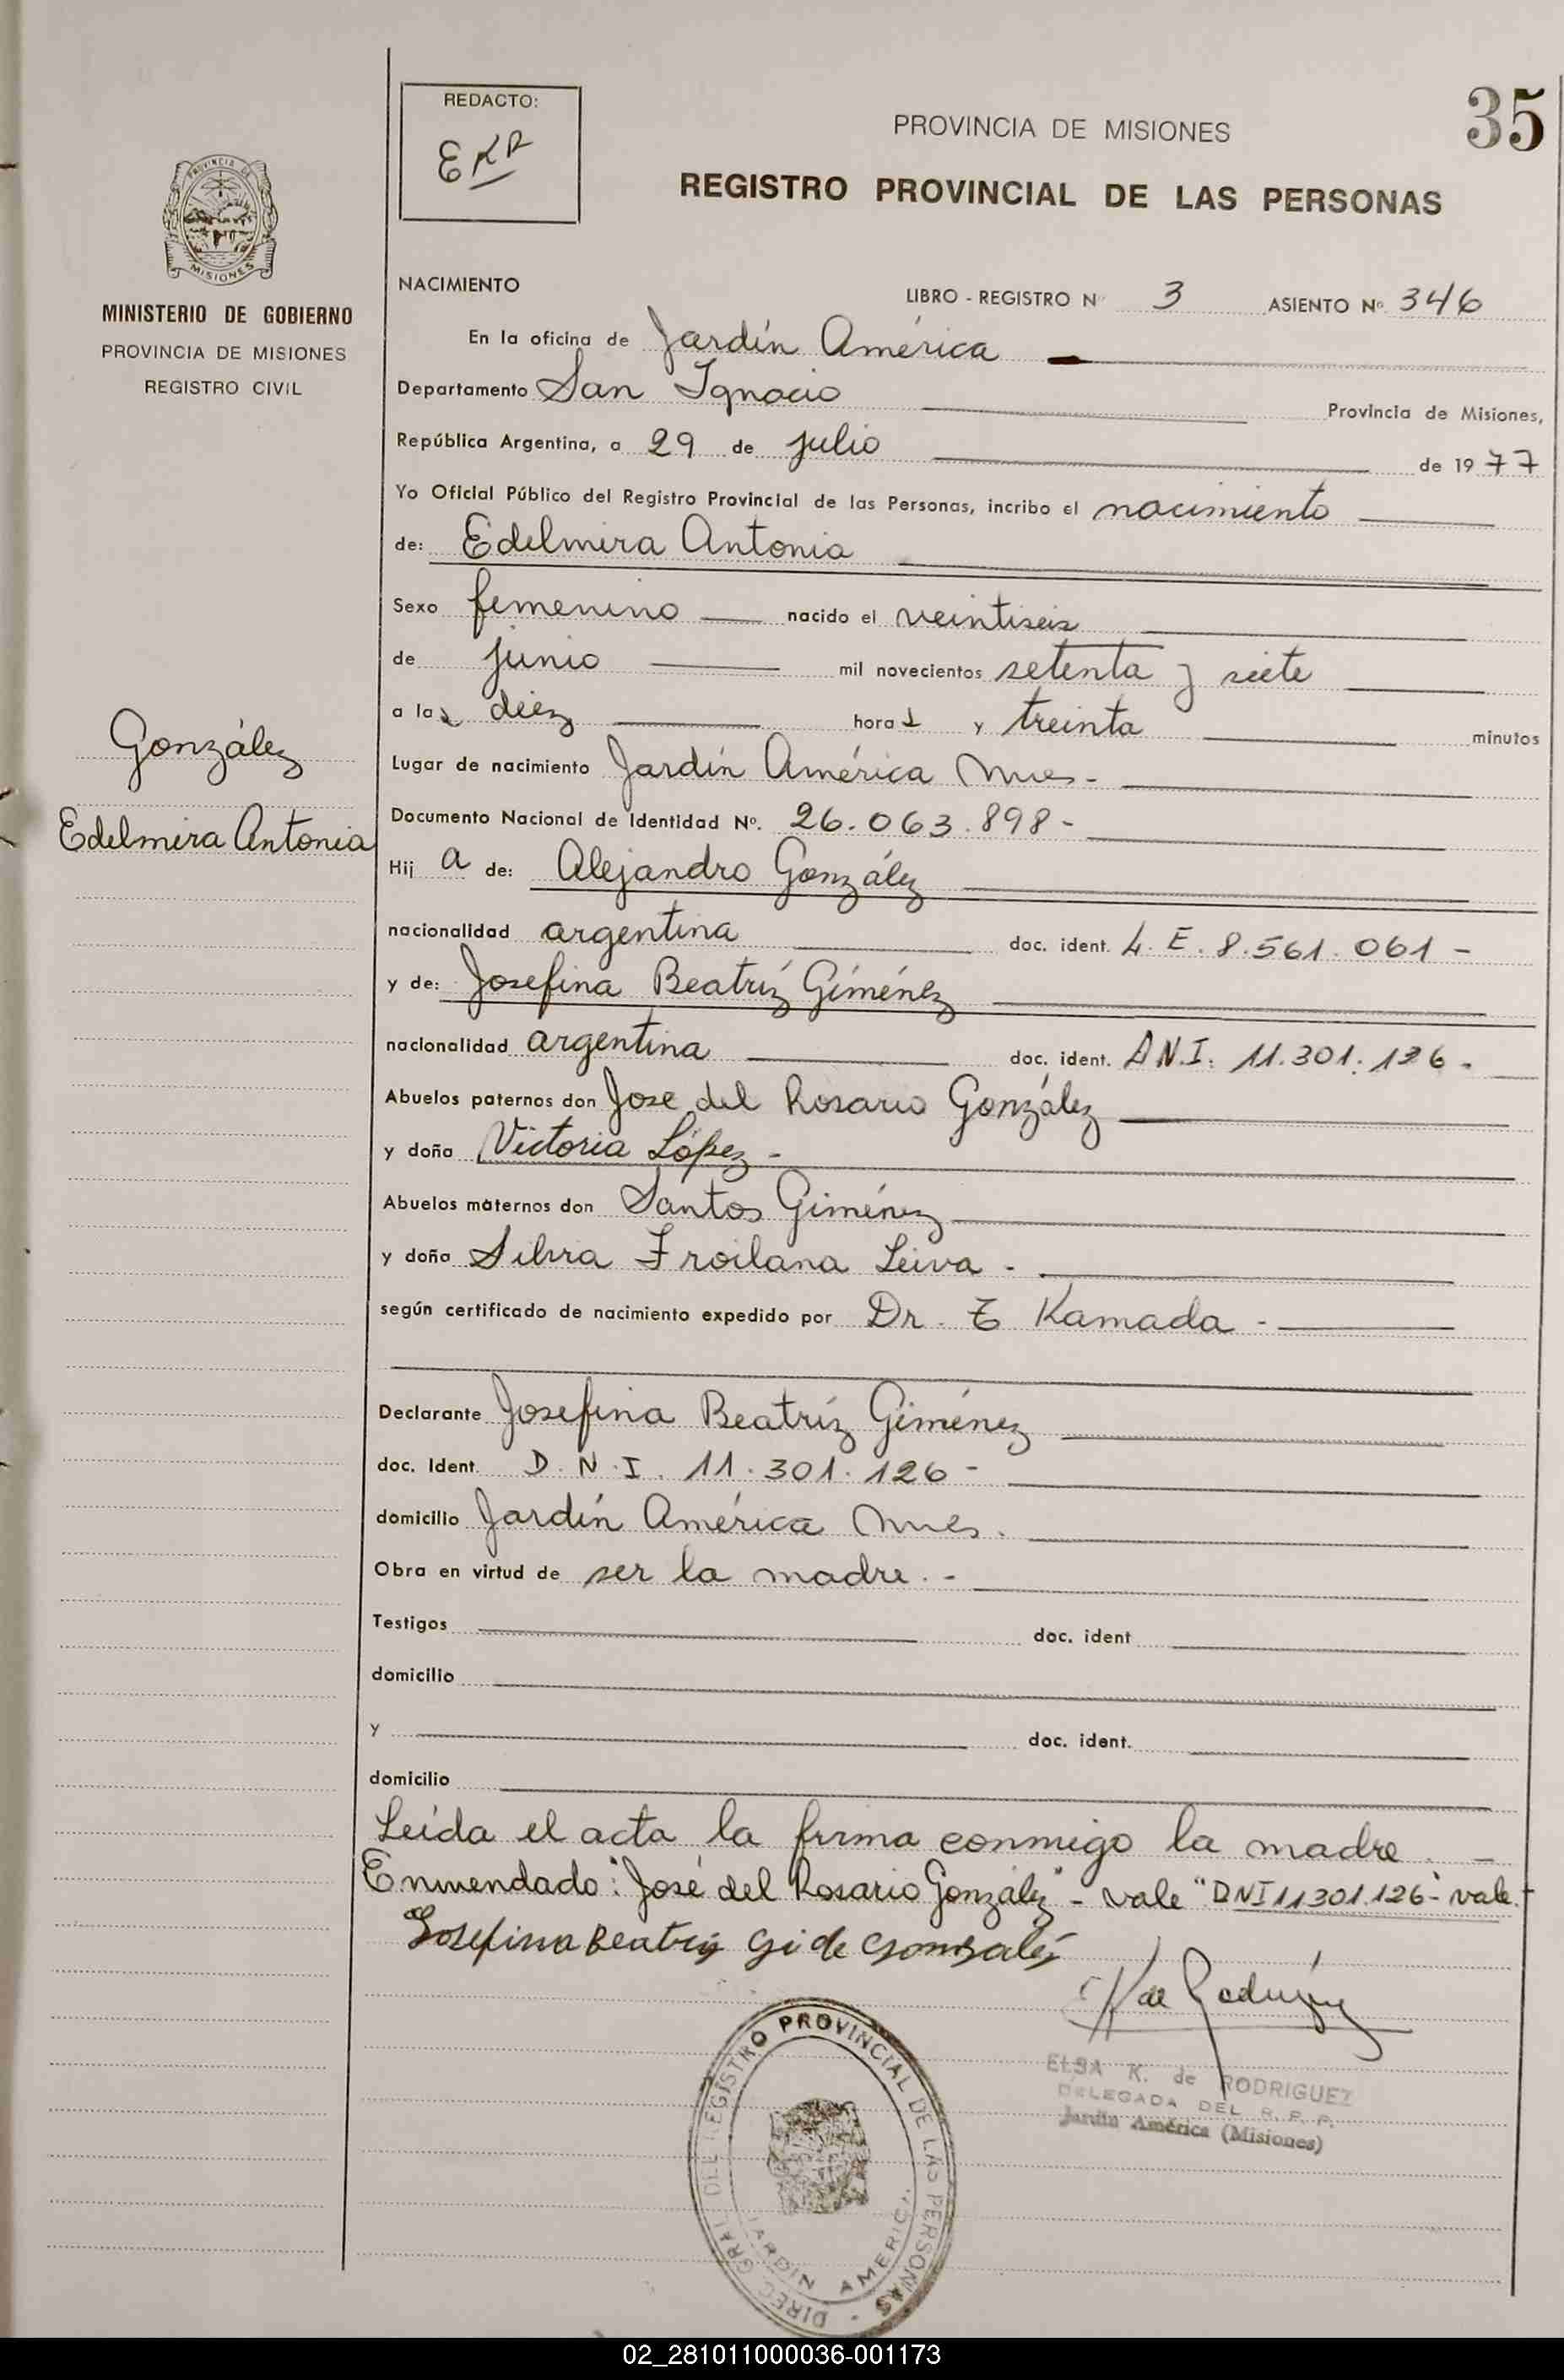 35
REDACTO:
EKR
PROVINCIA DE MISIONES
REGISTRO PROVINCIAL DE LAS PERSONAS
PROVINCIA DE
MISIONES
MINISTERIO DE GOBIERNO
PROVINCIA DE MISIONES
REGISTRO CIVIL
González
Edelmira Antonia
NACIMIENTO
LIBRO - REGISTRO Nº 3 ASIENTO Nº 346
En la oficina de Jardín América
Departamento San Ignacio Provincia de Misiones,
República Argentina, a 29 de julio de 1977
Yo Oficial Público del Registro Provincial de las Personas, incribo el nacimiento
de: Edelmira Antonia
Sexo femenino nacido el veintiseis
de junio mil novecientos setenta y siete
a las diez horas y treinta minutos
Lugar de nacimiento Jardín América Mnes-
Documento Nacional de Identidad Nº. 26.063.898-
Hij a de: Alejandro González
nacionalidad argentina doc. ident. L.E. 8.561.061-
y de: Josefina Beatríz Giménez
nacionalidad argentina doc. ident. D.N.I. 11.301.126-
Abuelos paternos don José del Rosario González
y doña Victoria López-
Abuelos maternos don Santos Giménez
y doña Silvia Froilana Leiva.
según certificado de nacimiento expedido por Dr. T Kamada-
Declarante Josefina Beatríz Giménez
doc. Ident. D.N.I. 11.301.126-
domicilio Jardín América Mnes.
Obra en virtud de ser la madre.-
Testigos doc. ident
domicilio
y doc. ident.
domicilio
Leída el acta la firma conmigo la madre. -
Enmendado: "José del Rosario González" - vale "DNI 11.301.126-" vale.-
Josefina Beatriz Gi de Gonzalez
EK de Rodríguez
ELSA K. de RODRIGUEZ
DELEGADA DEL R. P. P.
Jardín América (Misiones)
DIREC. GRAL. DEL REGISTRO PROVINCIAL DE LAS PERSONAS -
JARDIN AMERICA
02_281011000036-001173